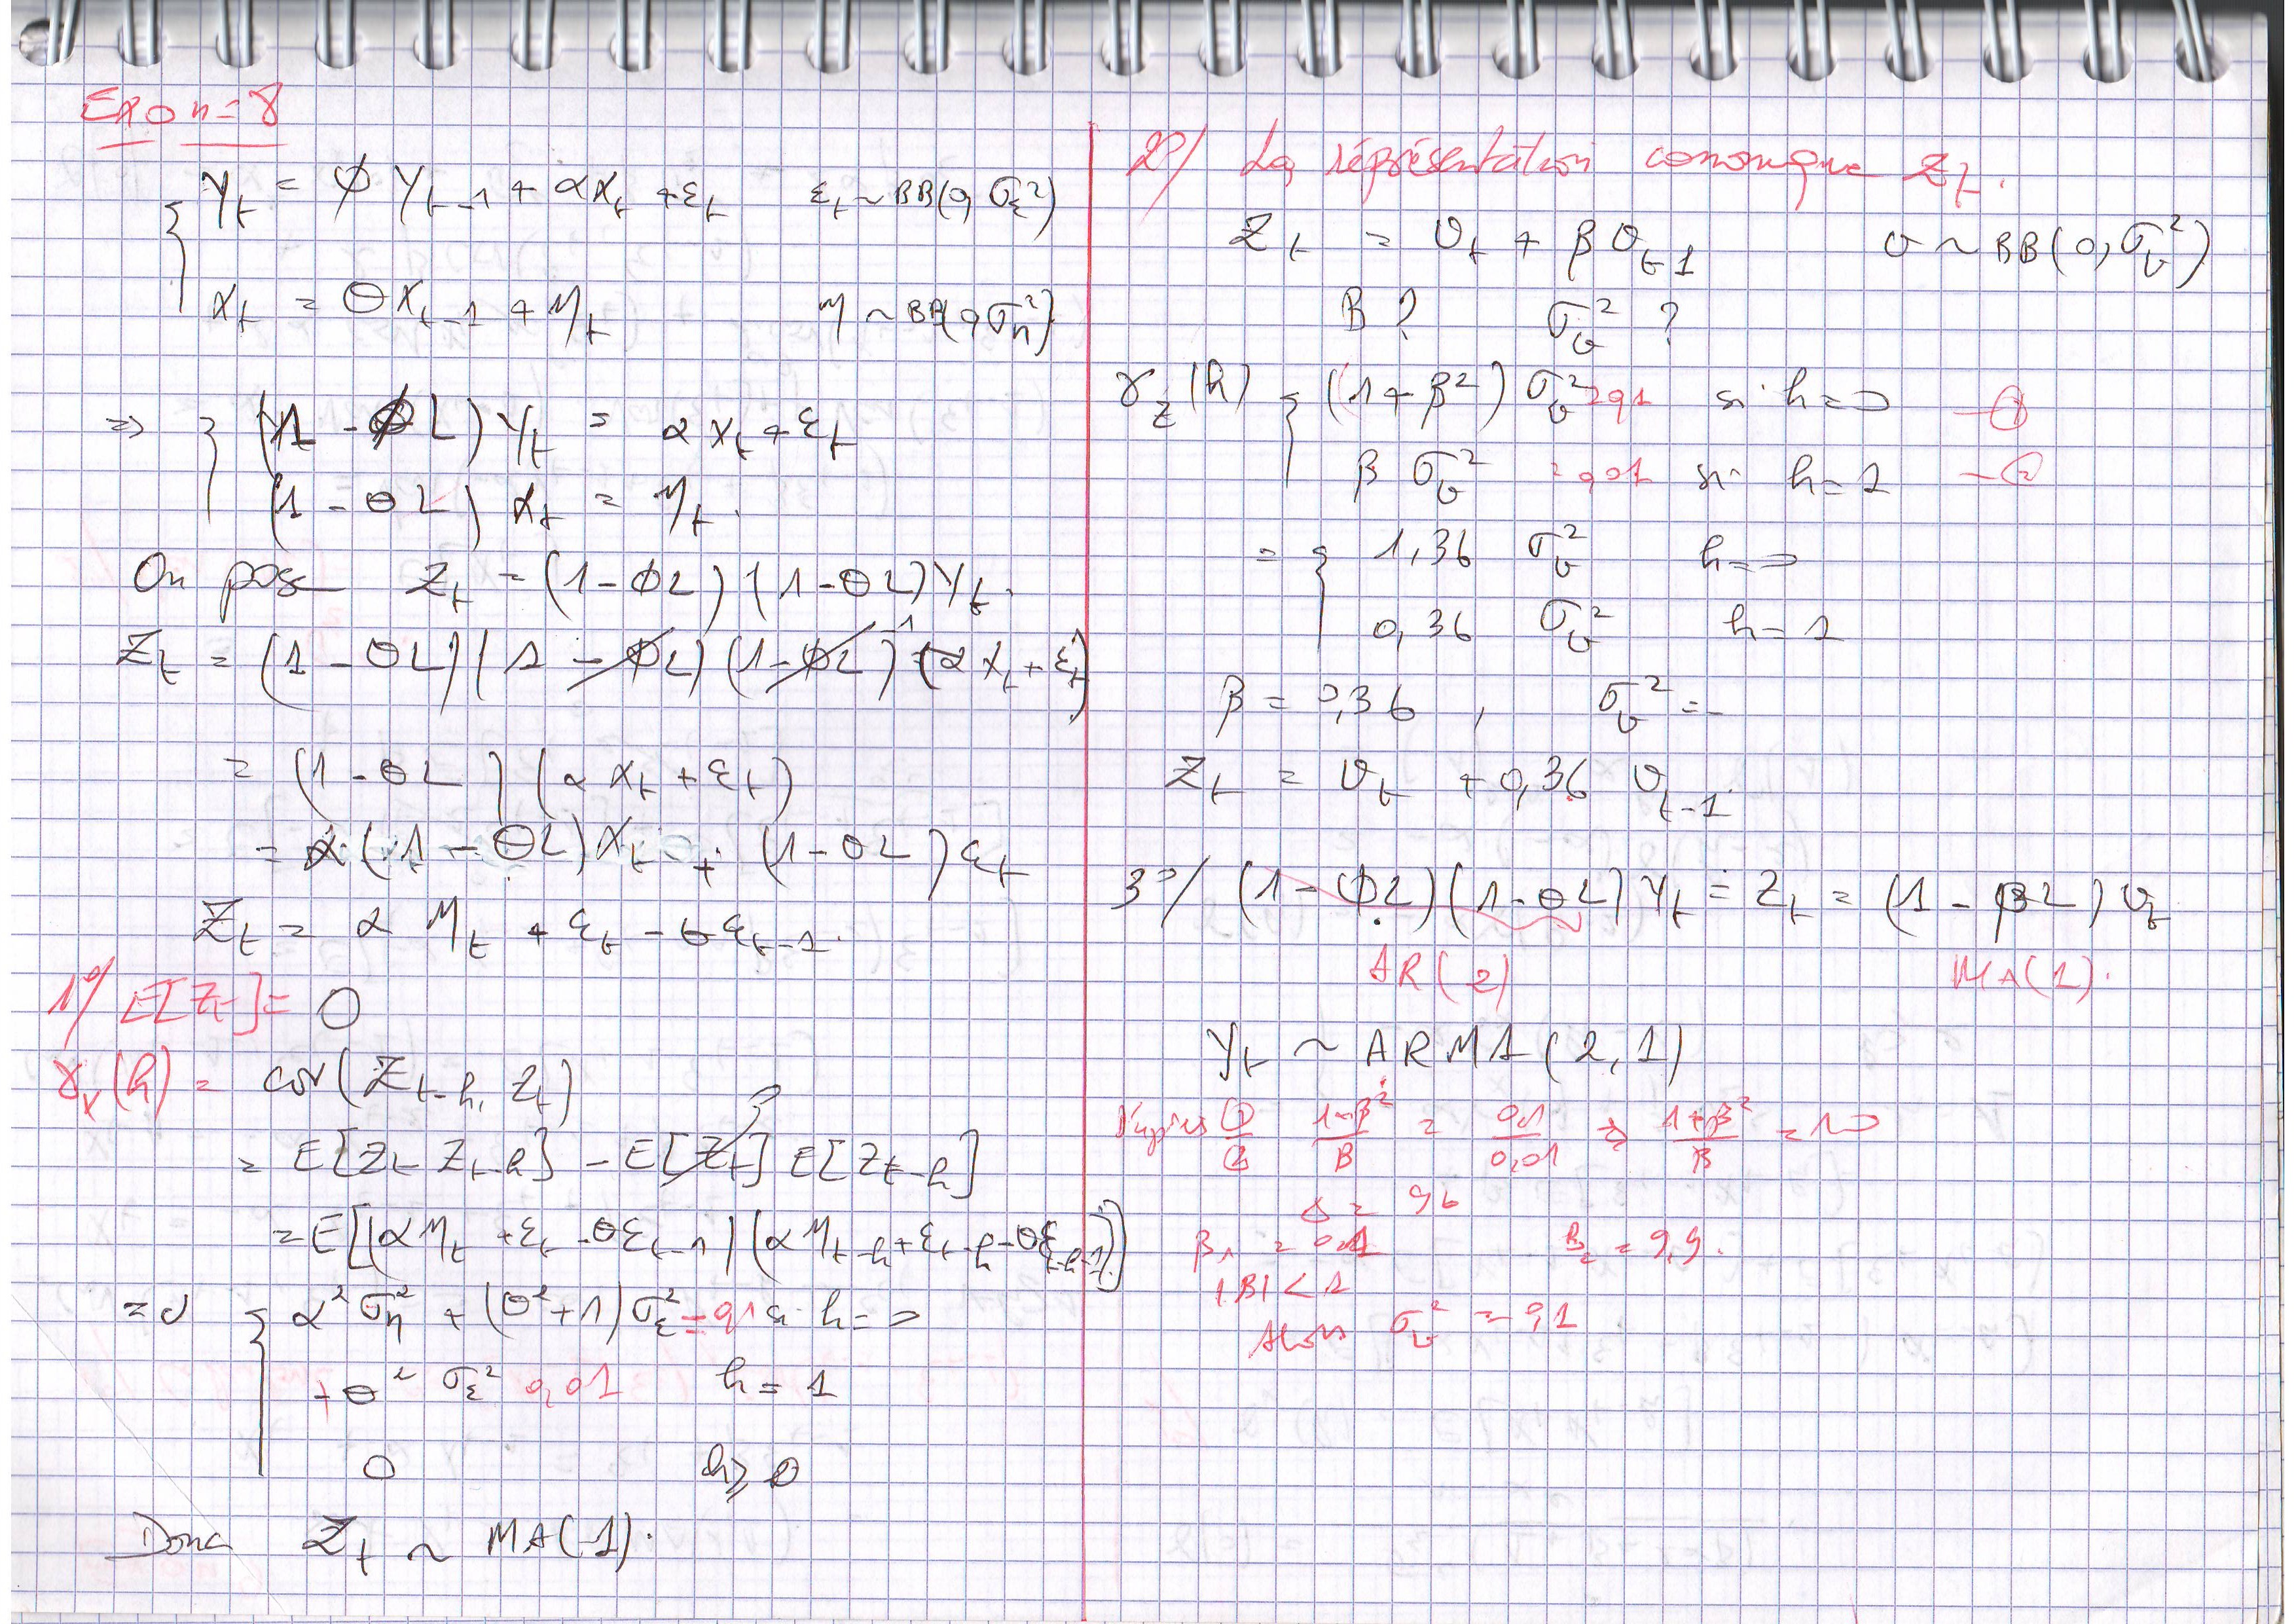 Exo n=8
Y_t = ϕ Y_{t-1} + αX_t + ε_t    ε_t ~ BB(0, σ_ε²)
X_t = θX_{t-1} + η_t    η ~ BB(0, σ_η²)
=> (1 - ϕL) Y_t = αX_t + ε_t
(1 - θL) X_t = η_t.
On pose Z_t = (1-ϕL)(1-θL)Y_t.
Z_t = (1 - θL)(1 - ϕL)(1-ϕL)^{-1}(αX_t + ε_t)
= (1 - θL)(αX_t + ε_t)
= α(1 - θL)X_t + (1-θL)ε_t
Z_t = α η_t + ε_t - θε_{t-1}.
1°/ E[Z_t] = 0
γ_x(h) = cov(Z_{t-h}, Z_t)
= E[Z_t Z_{t-h}] - E[Z_t] E[Z_{t-h}]
= E[(αη_t + ε_t - θε_{t-1})(αη_{t-h} + ε_{t-h} - θε_{t-h-1})]
α²σ_η² + (θ²+1)σ_ε² = 0,1 si h=0
+θ² σ_ε² 0,01    h = 1
0    h ≥
Donc Z_t ~ MA(1).
2°/ La réprésentation canonique Z_t.
Z_t = υ_t + β υ_{t-1}    υ ~ BB(0, σ_υ²)
β ?    σ_υ² ?
γ_z(h) { (1+β²) σ_υ² = 0,1    si h=0    -①
β σ_υ² = 0,01    si h=1    -②
= { 1,36 σ_υ²    h=0
0,36 σ_υ²    h=1
β = 0,36 ,    σ_υ² = -
Z_t = υ_t + 0,36 υ_{t-1}.
3°/ (1-ϕL)(1-θL)Y_t = Z_t = (1 - βL)υ_t
AR(2)    MA(1).
Y_t ~ ARMA(2,1)
D'après ①/② (1+β²)/β = 0,1/0,01 => (1+β²)/β = 10
Δ = 96
β_1 = 0,1    β_2 = 9,9.
|β| < 1
Alors σ_υ² = 0,1